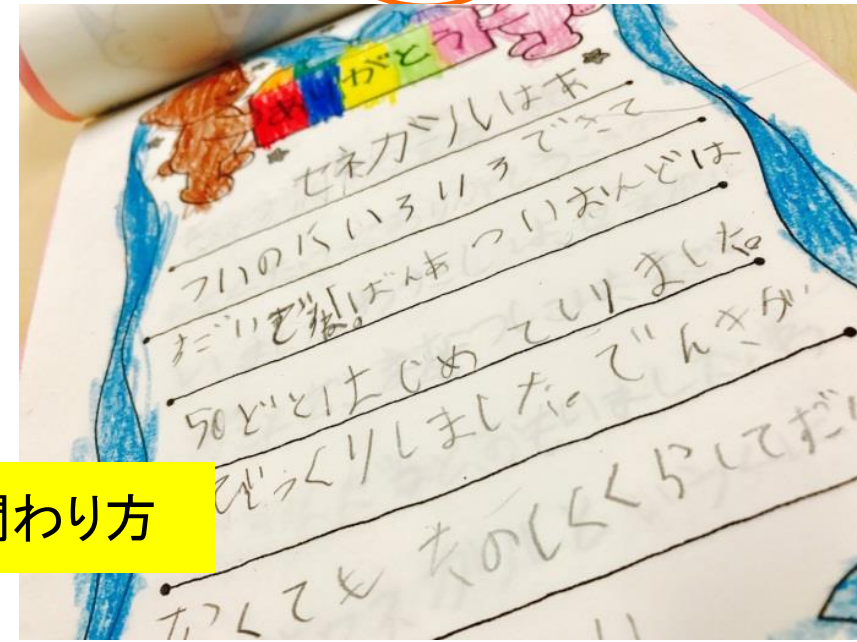 ありがとう
セネガルはあ
ついのにいろいろできて
すごいですね!ばんあついおんどは
50どとはじめてしりました。
びっくりしました。でんきが
なくてもたのしくくらしてすご
わり方